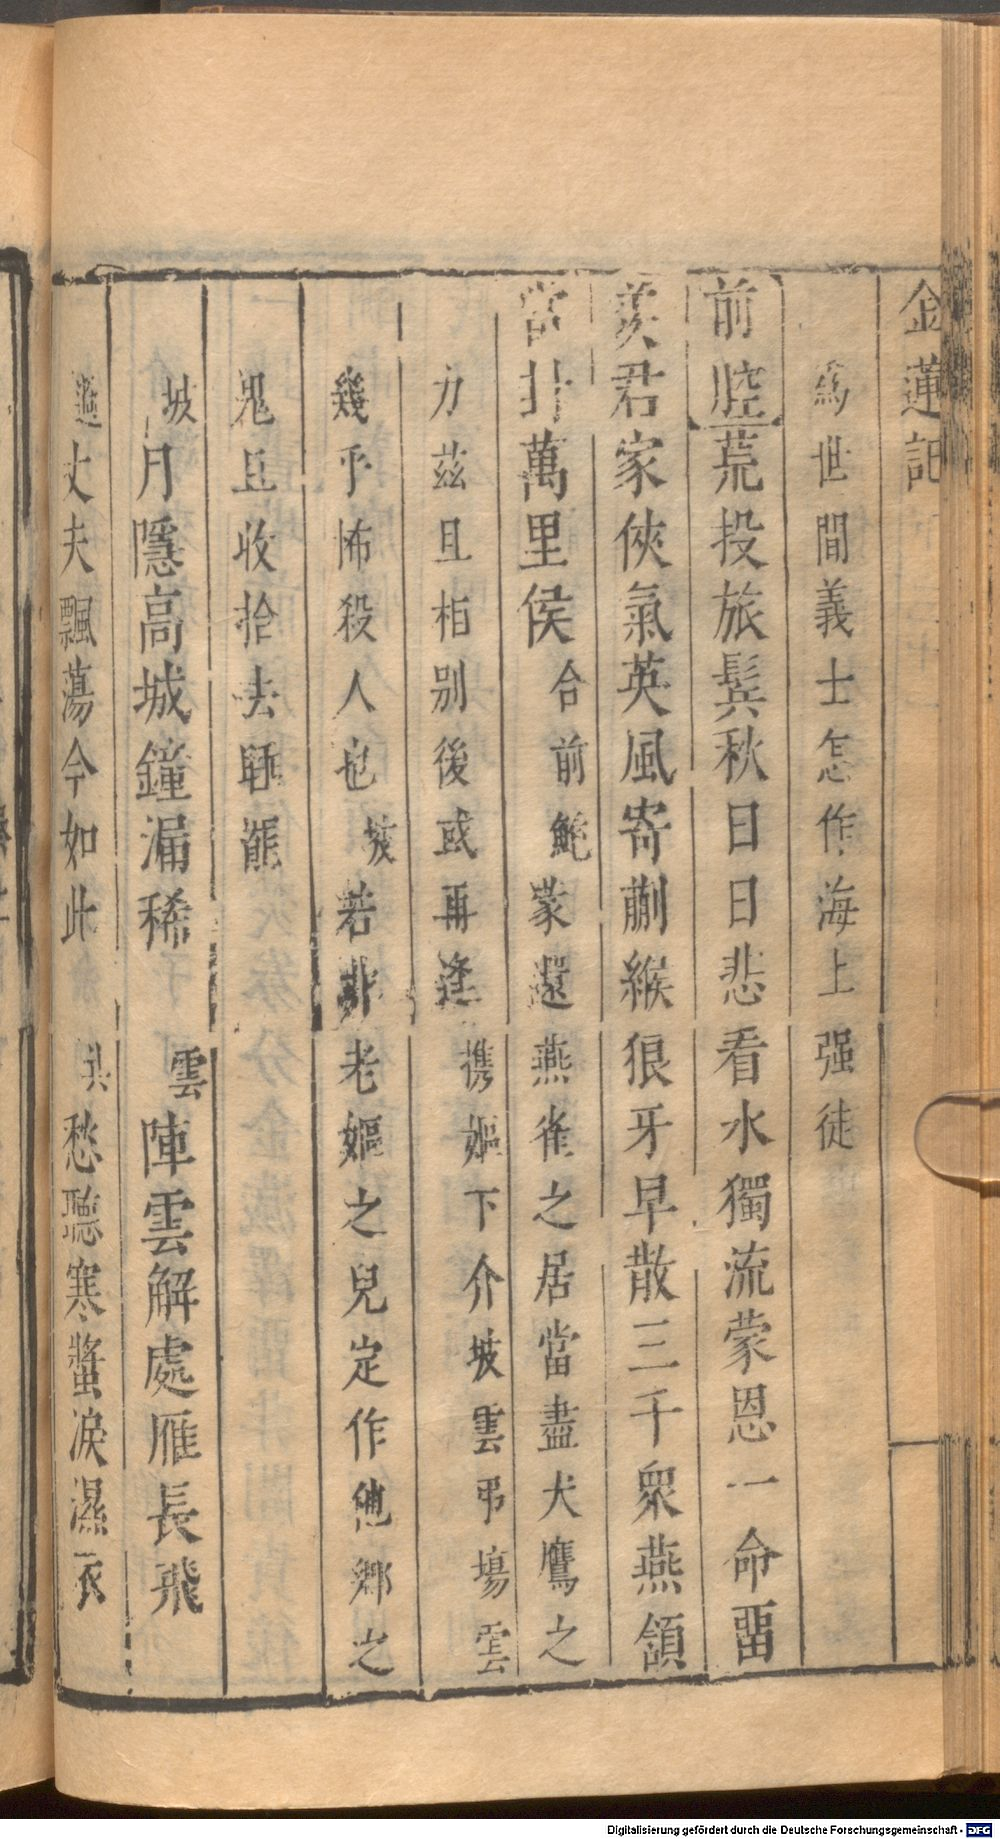 金蓮記
為世間義士怎作海上强徒
前腔荒投旅鬂秋日日悲看水獨流蒙恩一命畱
羨君家俠氣英風寄蒯緱狼牙早散三千衆燕頷
當封萬里侯合前䰾蒙還燕雀之居當盡犬鷹之
力茲且相别後或再逢携嫗下介坡雲弔塲雲
幾乎怖殺人也坡若非老嫗之兒定作他鄉之
鬼且收拾去睡罷
坡月隱高城鐘漏稀雲陣雲解處雁長飛
丈夫飄蕩今如此共愁聽寒螿淚濕衣
Digitalisierung gefördert durch die Deutsche Forschungsgemeinschaft - DFG